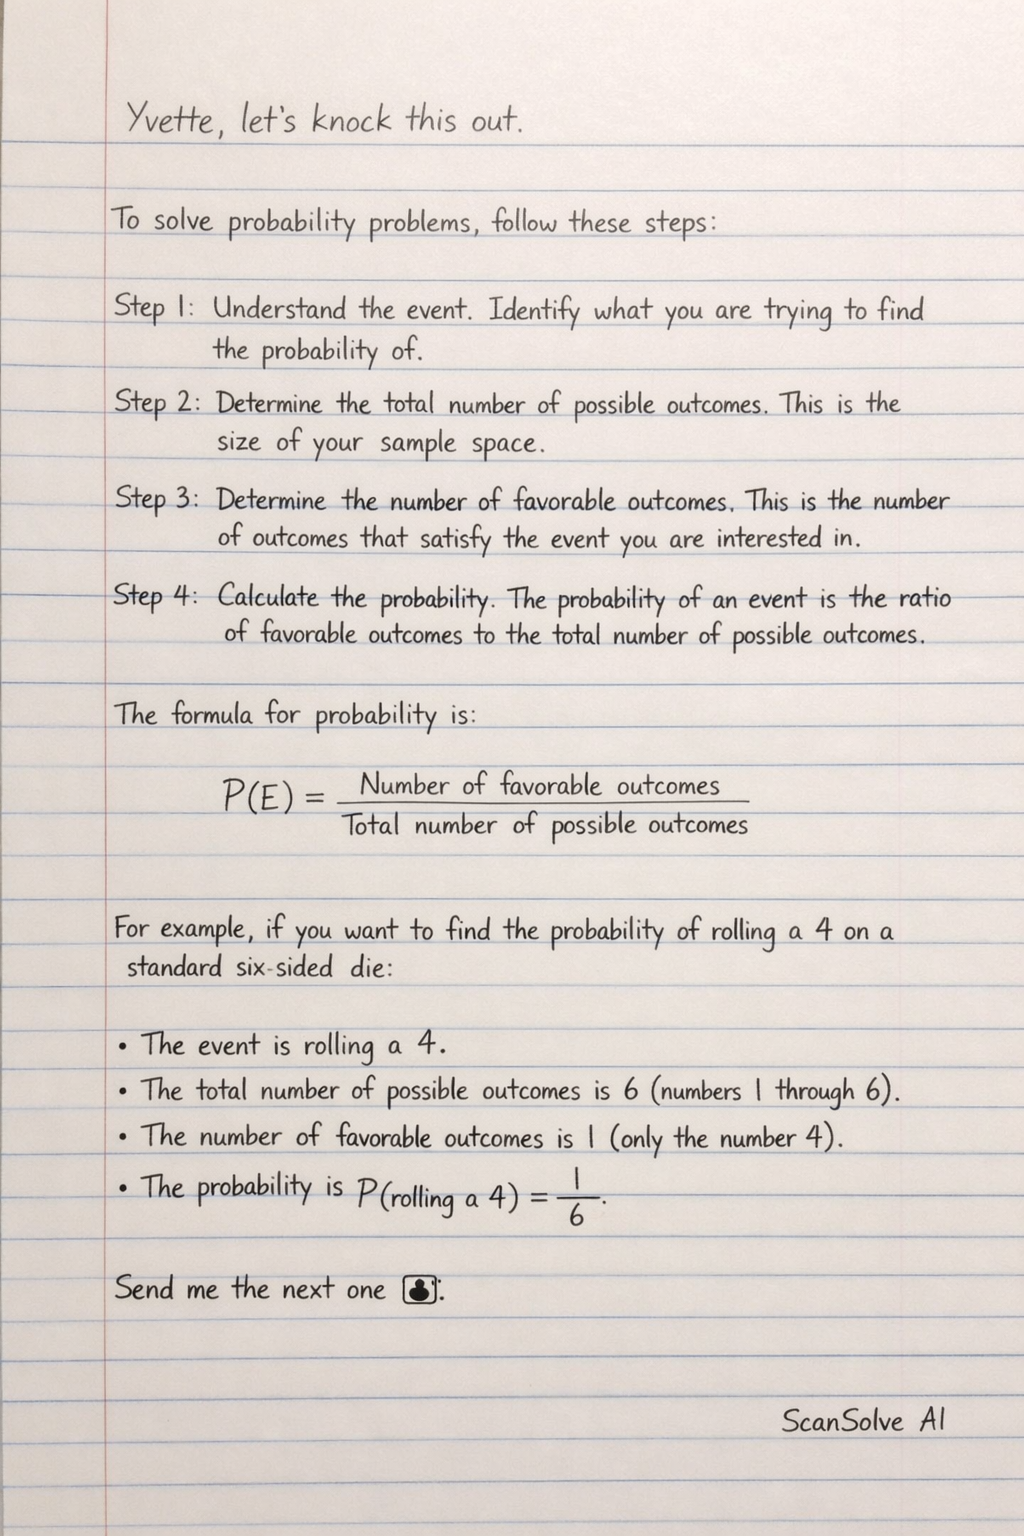 Yvette, let's knock this out.
To solve probability problems, follow these steps:
Step 1: Understand the event. Identify what you are trying to find
the probability of.
Step 2: Determine the total number of possible outcomes. This is the
size of your sample space.
Step 3: Determine the number of favorable outcomes. This is the number
of outcomes that satisfy the event you are interested in.
Step 4: Calculate the probability. The probability of an event is the ratio
of favorable outcomes to the total number of possible outcomes.
The formula for probability is:
P(E) = Number of favorable outcomes
Total number of possible outcomes
For example, if you want to find the probability of rolling a 4 on a
standard six-sided die:
• The event is rolling a 4.
• The total number of possible outcomes is 6 (numbers 1 through 6).
• The number of favorable outcomes is 1 (only the number 4).
• The probability is P(rolling a 4) = 1/6.
Send me the next one
ScanSolve AI